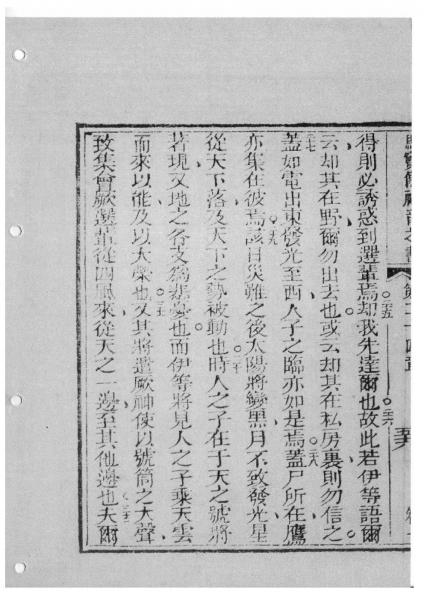 第二十四章
得則必誘惑到選輩焉却我先達爾也故此若伊等語爾
云却其在野爾勿出去也或云却其在私房裏則勿信之
蓋如電出東發光至西人子之臨亦如是焉蓋尸所在鷹
亦集在彼焉該日災難之後太陽將變黑月不致發光星
從天下落及天下之勢被動也時人之子在于天之號將
著現又地之各支為悲憂也而伊等將見人之子乘天雲
而來以能及以大榮也又其將遣厥神使以號筒之大聲
致集會厥選輩從四風來從天之一邊至其他邊也夫爾